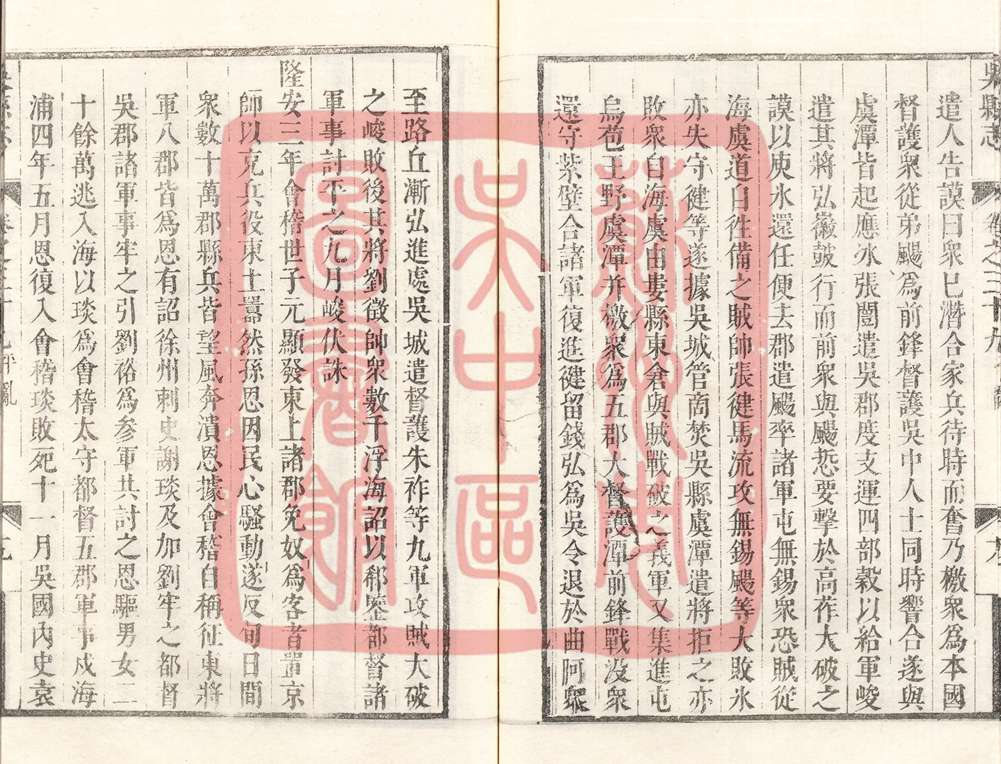 吳縣志
卷之三十九
遣人告謨曰衆已潛合家兵待時而奮乃檄衆爲本國
督護衆從弟颺爲前鋒督護吳中人士同時響合遂與
虞潭皆起應冰張闓遣吳郡度支運四部穀以給軍峻
遣其將弘徽鼓行而前衆與颺惎要擊於高柞大破之
謨以庾氷還任便去郡遣颺率諸軍屯無錫衆恐賊從
海虞道自往備之賊帥張健馬流攻無錫颺等大敗氷
亦失守健等遂據吳城管商焚吳縣虞潭遣將拒之亦
敗衆自海虞由婁縣東倉與賊戰破之義軍又集進屯
烏苞王野虞潭并檄衆爲五郡大督護潭前鋒戰没衆
還守紫壁合諸軍復進健留錢弘爲吳令退於曲阿衆
至路丘漸弘進處吳城遣督護朱祚等九軍攻賊大破
之峻敗後其將劉徵帥衆數千浮海詔以郗鑒都督諸
軍事討平之九月峻伏誅
隆安三年會稽世子元顯發東土諸郡免奴爲客者置京
師以充兵役東土囂然孫恩因民心騷動遂反旬日間
衆數十萬郡縣兵皆望風奔潰恩據會稽自稱征東將
軍八郡皆爲恩有詔徐州刺史謝琰及加劉牢之都督
吳郡諸軍事牢之引劉裕爲參軍共討之恩驅男女二
十餘萬逃入海以琰爲會稽太守都督五郡軍事戍海
浦四年五月恩復入會稽琰敗死十一月吳國內史袁
蘇州市
吳中區
圖書館